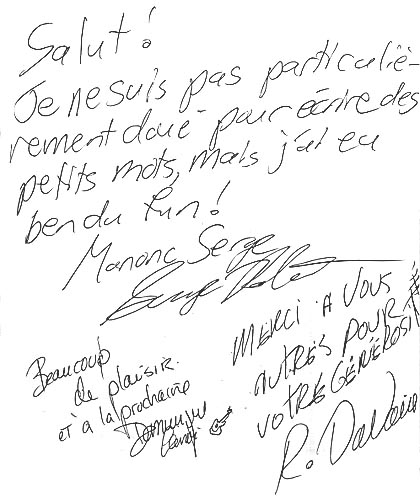 Salut!
Je ne suis pas particuliè-
rement doué pour écrire des
petits mots, mais j'ai eu
ben du fun!
Manon Serge
Beaucoup
de plaisir
et à la prochaine
MERCI A VOUS
AUTRES POUR
VOTRE GÉNÉROSITÉ
R.